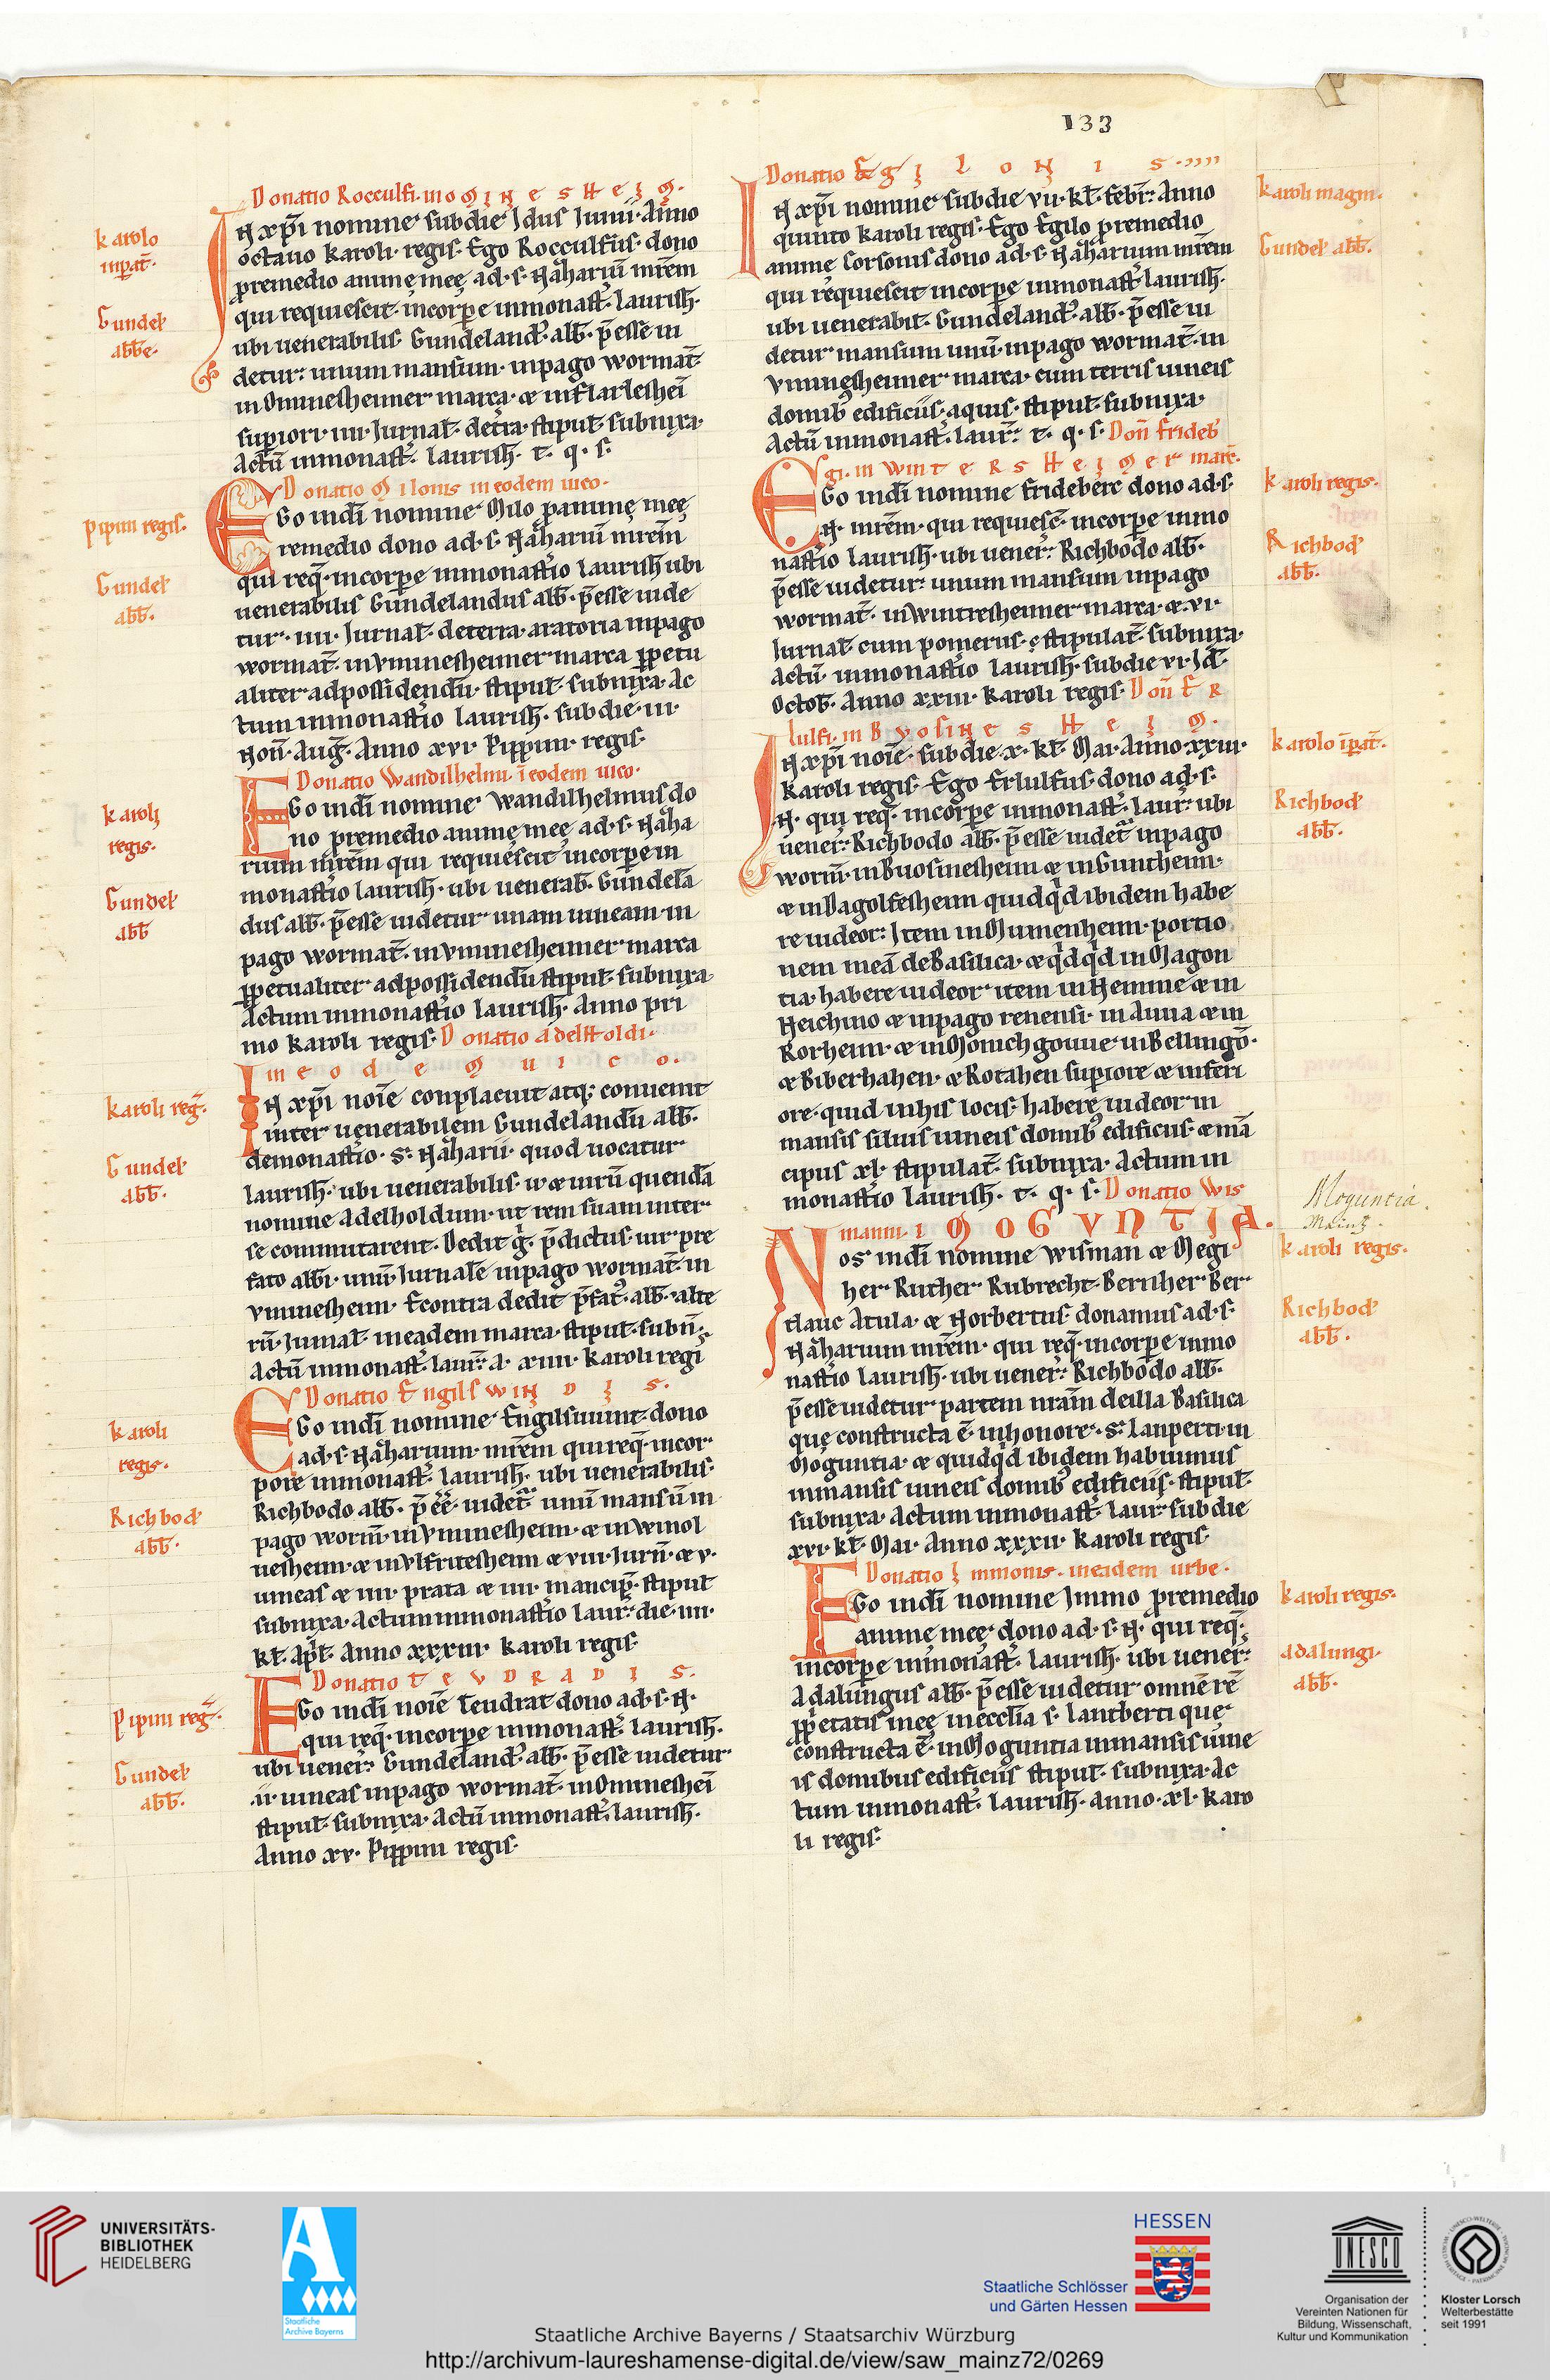 133
Donatio Rocculfi. in oMINesHeIM.
IN xp̄i nomine sub die Idus Iunii. Anno
octauo karoli. regis. Ego Rocculfus. dono
p̱remedio animę meę ad. s. Naharıū m̅rēm
qui requiescit. in corp̱e in monast̄. laurish̄.
ubi uenerabilis. Gundeland᷒. abb̄. p̄esse ui
detur: unum mansum. in pago wormat̄.
in Ominesheimer marca. & in flarlesheī
sup̱iori. iiii. Iurnal̄. de tr̄a. stipul̄. subnixa.
Actū in monast̄. laurish̄. t. q. s.
karolo
inp̱at̄.
Gundel̄
abb̄e.
Donatio Milonis in eodem uico.
EGo in dī nomine Milo p̱ animę meę
remedio dono ad. s. Naharıū m̅rēm
qui req̄. in corp̱e in monast̄io laurish̄ ubi
uenerabilis Gundelandus abb̄. p̄esse uide
tur. iiii. Iurnal̄. de terra. aratoria in pago
wormat̄. in vminesheimer marca p̱petu
aliter ad possidendū. stipul̄. subnixa. Ac
tum in monast̄io laurish̄. sub die. iii.
Non̄. Aug̅. Anno xvi. Pippini. regis.
pipini regis.
Gundel̄
abb̄.
Donatio Wandilhelmi ī eodem uico.
EGo in dī nomine Wandilhelmus do
no p̱remedio animę meę ad. s. Naha
rium m̅rēm qui requiescit in corp̱e in
monast̄io laurish̄. ubi uenerab̄. Gundelā
dus abb̄. p̄esse uidetur unam uineam. in
pago wormat̄. in vminesheimer marca
p̱petualiter ad possidendū stipul̄. subnixa.
Actum in monast̄io laurish̄. Anno pri
mo karoli regis. Donatio adelHoldi.
karoli
regis.
Gundel̄
abb̄
in eodeM uico.
IN xp̄i noīe conplacuit atq; conuenit
inter uenerabilem Gundelandū abb̄.
de monast̄io. S. Naharii. quod uocatur
laurish̄. ubi uenerabilis. w & uirū quendā
nomine Adelholdum. ut rem suam inter
se commutarent. Dedit g̊. p̄dictus. uir pre
fato abb̄i. unū Iurnalē in pago wormat̄. in
vminesheim. Econtra dedit p̄fat᷒. abb̄. alte
rū. Iurnal̄. in eadem marca. stipul̄. subn̄.
Actū in monast̄. laur̄. A. xiiii. karoli regī
karoli reg̅.
Gundel̄
abb̄.
Donatio EngilswINDIs.
EGo in dī nomine Engilsuuint. dono
ad. s. Naharium. m̅rēm qui req̄. in cor
pore in monast̄. laurish̄. ubi uenerabilis.
Richbodo abb̄. p̄eē. uidet᷑ unū mansū in
pago worm̄. in vminesheim. & in winol
uesheim. & in vlfritesheim & viii. Iurn̄. & v.
uineas & iiii. prata & iiii. mancip̄. stipul̄
subnixa. Actum in monast̄io laur̄. die. iiii.
kl̄. Ap̱l̄. Anno xxxiii. karoli regis.
karoli
regis.
Richbod
abb̄.
Donatio TEVDRADIS.
EGo in dī noīe Teudrat dono ad. s. N.
qui req̄. in corp̱e in monast̄. laurish̄.
ubi uener̄. Gundeland᷒. abb̄. p̄esse uidetur
.ii. uineas in pago wormat̄. in Ominesheī
stipul̄. subnixa. Actū in monast̄. laurish̄.
Anno xv. Pippini regis.
Pipini reg̅.
Gundel̄
abb̄.
Donatio EgILONIS.
IN xp̄i nomine sub die vii. kl̄. febr̄. Anno
quinto karoli regis. Ego Egilo p̱remedio
animę Corsonis dono ad. s. Naharium m̅rēm
qui requiescit in corp̱e in monast̄. laurish̄.
ubi uenerabil̄. Gundeland᷒. abb̄. p̄esse ui
detur mansum unū. in pago wormat̄. in
vminesheimer marca. cum terris uineis
domib᷒ edificiis. aquis. stipul̄. subnixa.
Actū in monast̄. laur̄. t. q. s. Don̄ frideb̄
karoli magni.
Gundel̄ abb̄.
gi. in WintersHeIMer marc̄.
EGo in dī nomine friderberc dono ad. s.
N. m̅rēm. qui requiesc̄. in corp̱e in mo
nast̄io laurish̄. ubi uener̄. Richbodo abb̄.
p̄esse uidetur. unum mansum in pago
wormat̄. in Wintresheimer marca. & vi.
Iurnal̄ cum pomeriis. stipulat̄. subnixa.
Actū. in monast̄io laurish̄. sub die vi. Id̄.
Octob̄. Anno xxiii. karoli regis. Don̄ ER
karoli regis.
Richbod
abb̄.
lulfi. in BvosiNesHeIM.
IN xp̄i noīe. sub die. x. kl̄. Mai. Anno xxiii.
karoli regis. Ego Erlulfus. dono ad. s.
N. qui req̄. in corp̱e in monast̄. laur̄. ubi
uener̄. Richbodo abb̄. p̄esse uidet᷑ in pago
worm̄. in Buosinesheim & in Guntheim.
& in Dagolfesheim quidq̊d ibidem habe
re uideor. Item in Mumenheim. portio
nem meā de Basilica. & q̊dq̊d in Magon
tia. habere uideor item in Hemme & in
Heichino & in pago renensi. in Auua & in
Rorheim. & in Monichgouue in Bellingō.
& Biberhahen. & Rotahen sup̱iore & inferi
ore. quid in his locis. habere uideor in
mansis siluis uineis domib᷒ edificiis. & mā
cipiis xl. stipulat̄. subnixa. Actum in
monast̄io laurish̄. t. q. s. Donatio Wis
karolo īp̱at̄.
Richbod
abb̄.
manni. i MOGVNTIA.
Nos in dī nomine Wisman & Megi
her. Ruther. Rubrecht. Bernher Ber
tlauc Atula. & Norbertus. donamus ad. s.
Naharium m̅rēm. qui req̄. in corp̱e in mo
nast̄io laurish̄. ubi uener̄. Richbodo abb̄.
p̄esse uidetur partem n̅rām de illa Basilica
que constructa ē. in honore. S. Lanperti. in
Moguntia. & quidq̊d ibidem habuimus
in mansis uineis domib᷒ edificiis. stipul̄.
subnixa. Actum in monast̄. laur̄ sub die
xvi. kl̄. Mai. Anno xxxii. karoli regis.
Moguntia.
Mainz.
karoli regis.
Richbod
abb̄.
Donatio Immonis. in eadem urbe.
EGo in dī nomine Immo p̱remedio
anime meę. dono ad. s. N. qui req̄.
in corp̱e in monast̄. laurish̄. ubi uener̄.
Adalungus abb̄. p̄esse uidetur omnē rē
p̱p̱etatis meę in eccl̄ia s. Lantberti que
constructa ē. in Moguntia in mansis uine
is domibus edificiis stipul̄. subnixa. Ac
tum in monast̄. laurish̄. Anno. xl. karo
li regis.
karoli regis.
adalungi.
abb̄.
UNIVERSITÄTS-
BIBLIOTHEK
HEIDELBERG
Staatliche
Archive Bayerns
HESSEN
Staatliche Schlösser
und Gärten Hessen
UNESCO
Organisation der
Vereinten Nationen für
Bildung, Wissenschaft,
Kultur und Kommunikation
Kloster Lorsch
Welterbestätte
seit 1991
Staatliche Archive Bayerns / Staatsarchiv Würzburg
http://archivum-laureshamense-digital.de/view/saw_mainz72/0269